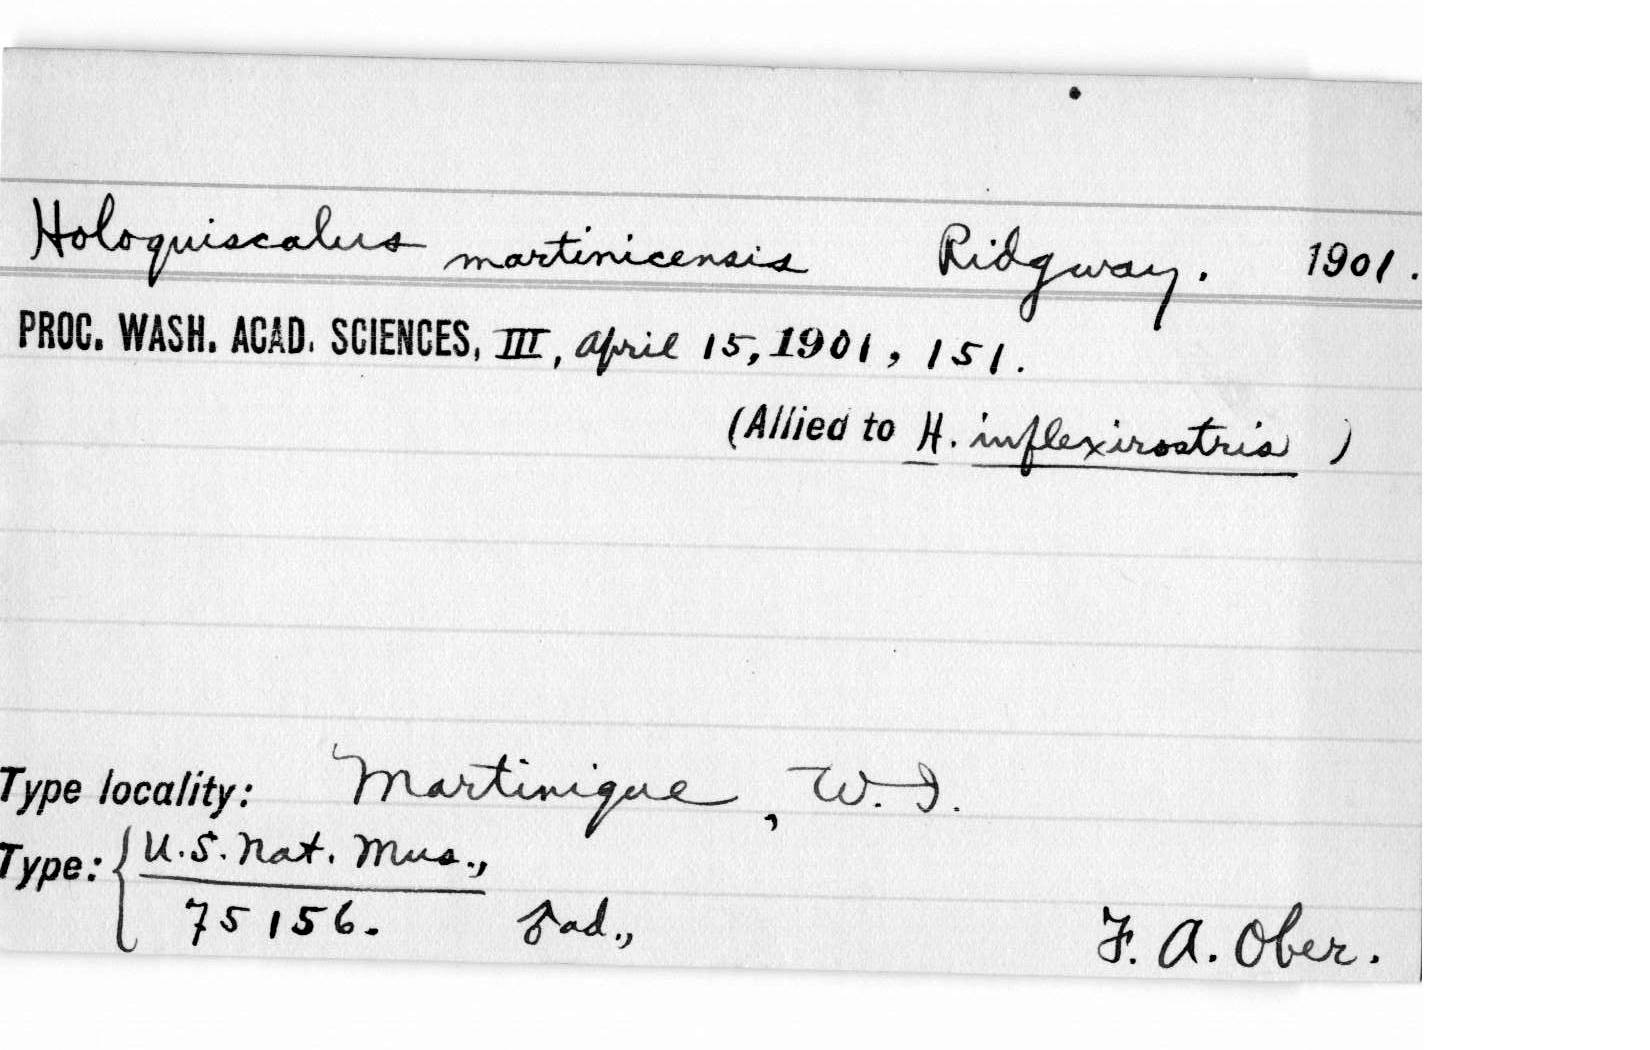 Holoquiscalus martinicensis Ridgway. 1901.
PROC. WASH. ACAD. SCIENCES, III, April 15, 1901, 151.
(Allied to H. inflexirostris )
Type locality: Martinique, W. I.
Type: { U.S. Nat. Mus.,
75156. ad., F. A. Ober.